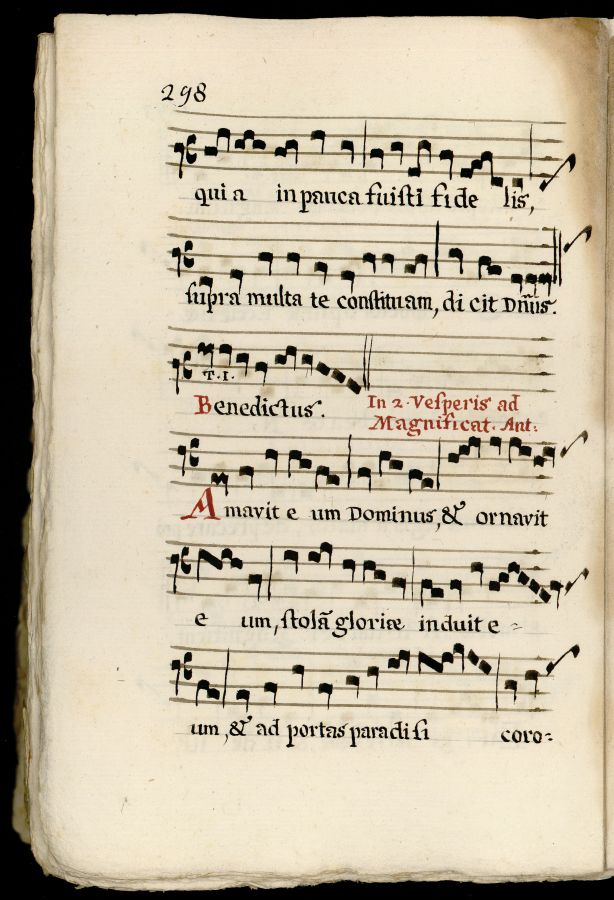 298
qui a in pauca fuisti fide lis,
supra multa te constituam, di cit Dñus.
T. I.
Benedictus. In 2. Vesperis ad
Magnificat. Ant:
Amavit e um Dominus, & ornavit
e um, stolã gloriæ induit e -
um, & ad portas paradi si coro=